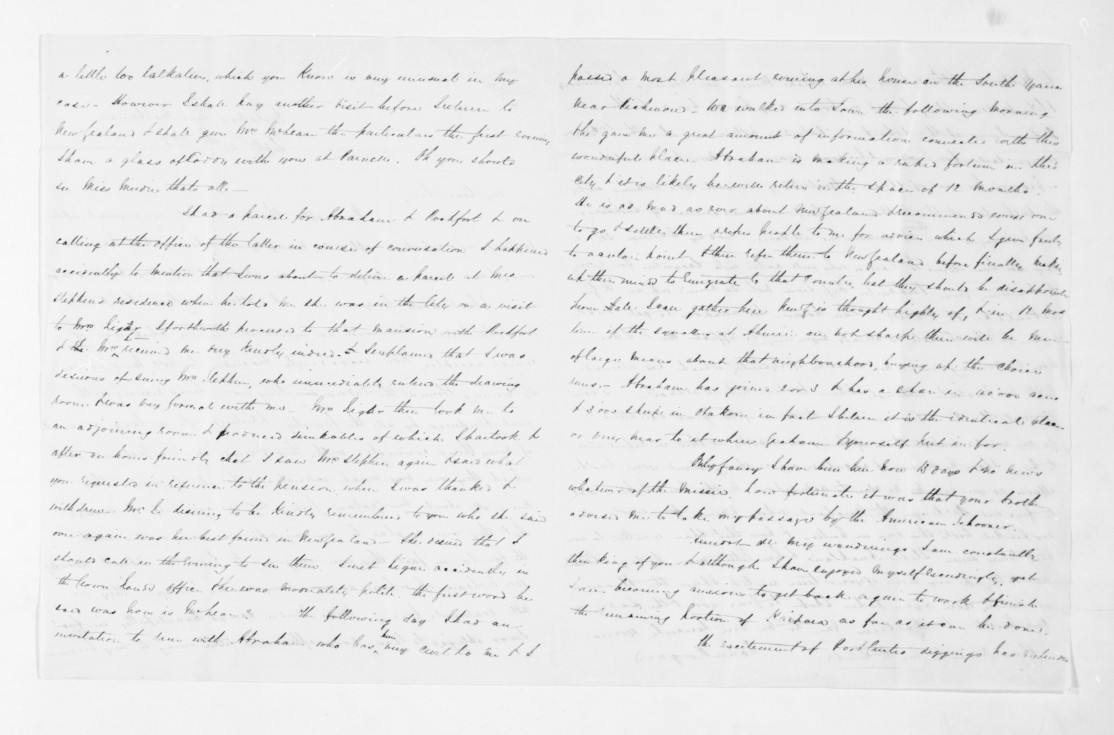 a little too talkative, which you know is very unusual in my
case - However I shall pay another visit before I return to
New Zealand & shall give Mrs McLean the particulars the first evening
I have a glass of toddy with you at Parnell. Oh you should
see Miss that's all -
I had a parcel for Abraham & Rochfort & on
calling at the office of the latter in course of conversation I happened
accidentally to mention that I was about to deliver a parcel at Mrs
Stephens residence when he told me she was in the City on a visit
to Mrs I forthwith proceeded to that mansion with Rochfort
& the Mrs received me very kindly indeed - & I explained that I was
desirous of seeing Mrs Stephen, who immediately entered the drawing
room & was very formal with me. Mrs then took me to
an adjoining room & produced drinkables of which I partook &
after an hours friendly chat I saw Mrs Stephen again & said what
you requested in reference to the pension, when I was thanked &
withdrew. Mrs desiring to be kindly remembered to you who she said
once again was her best friend in New Zealand. She desired that I
should call in the evening to see them. I met accidentally in
the Crown Lands Office & he was moderately polite the first word he
said was how is McLean? The following day I had an
invitation to dine with Abraham, who has been very civil to me & I
passed a most pleasant evening at his house on the South Yarra
near Richmond. We walked into Town the following morning
& he gave me a great amount of information connected with this
wonderful place. Abraham is making a rapid fortune in this
City & it is likely he will return in the space of 12 months
He is as mad as ever about New Zealand & recommends every one
to go & settle there & refers people to me for advice which I give freely
to a certain point & then refer them to New Zealand before finally making
up their minds to Emigrate to that Country, lest they should be disappointed
From I can gather here New Z is thought highly of, & in 12 mos
time if the at Ahuriri are not sharp there will be men
of larger means about that neighbourhood, buying up the choicest
runs - Abraham has joined 2 or 3 & has a share in acres
& 3000 sheep in in fact I believe it is the identical place
or very near to it where Graham & yourself put in for.
Only fancy I have been here now 13 days & no news
whatever of the Messie, how fortunate it was that your
advised me to take my passage by the American Schooner.
Amidst all my wanderings I am constantly
thinking of you & although I have enjoyed myself exceedingly, yet
I am becoming anxious to get back again to work & finish
the remaining portion of as far as it can be done.
The excitement of Port Curtis diggings has extended